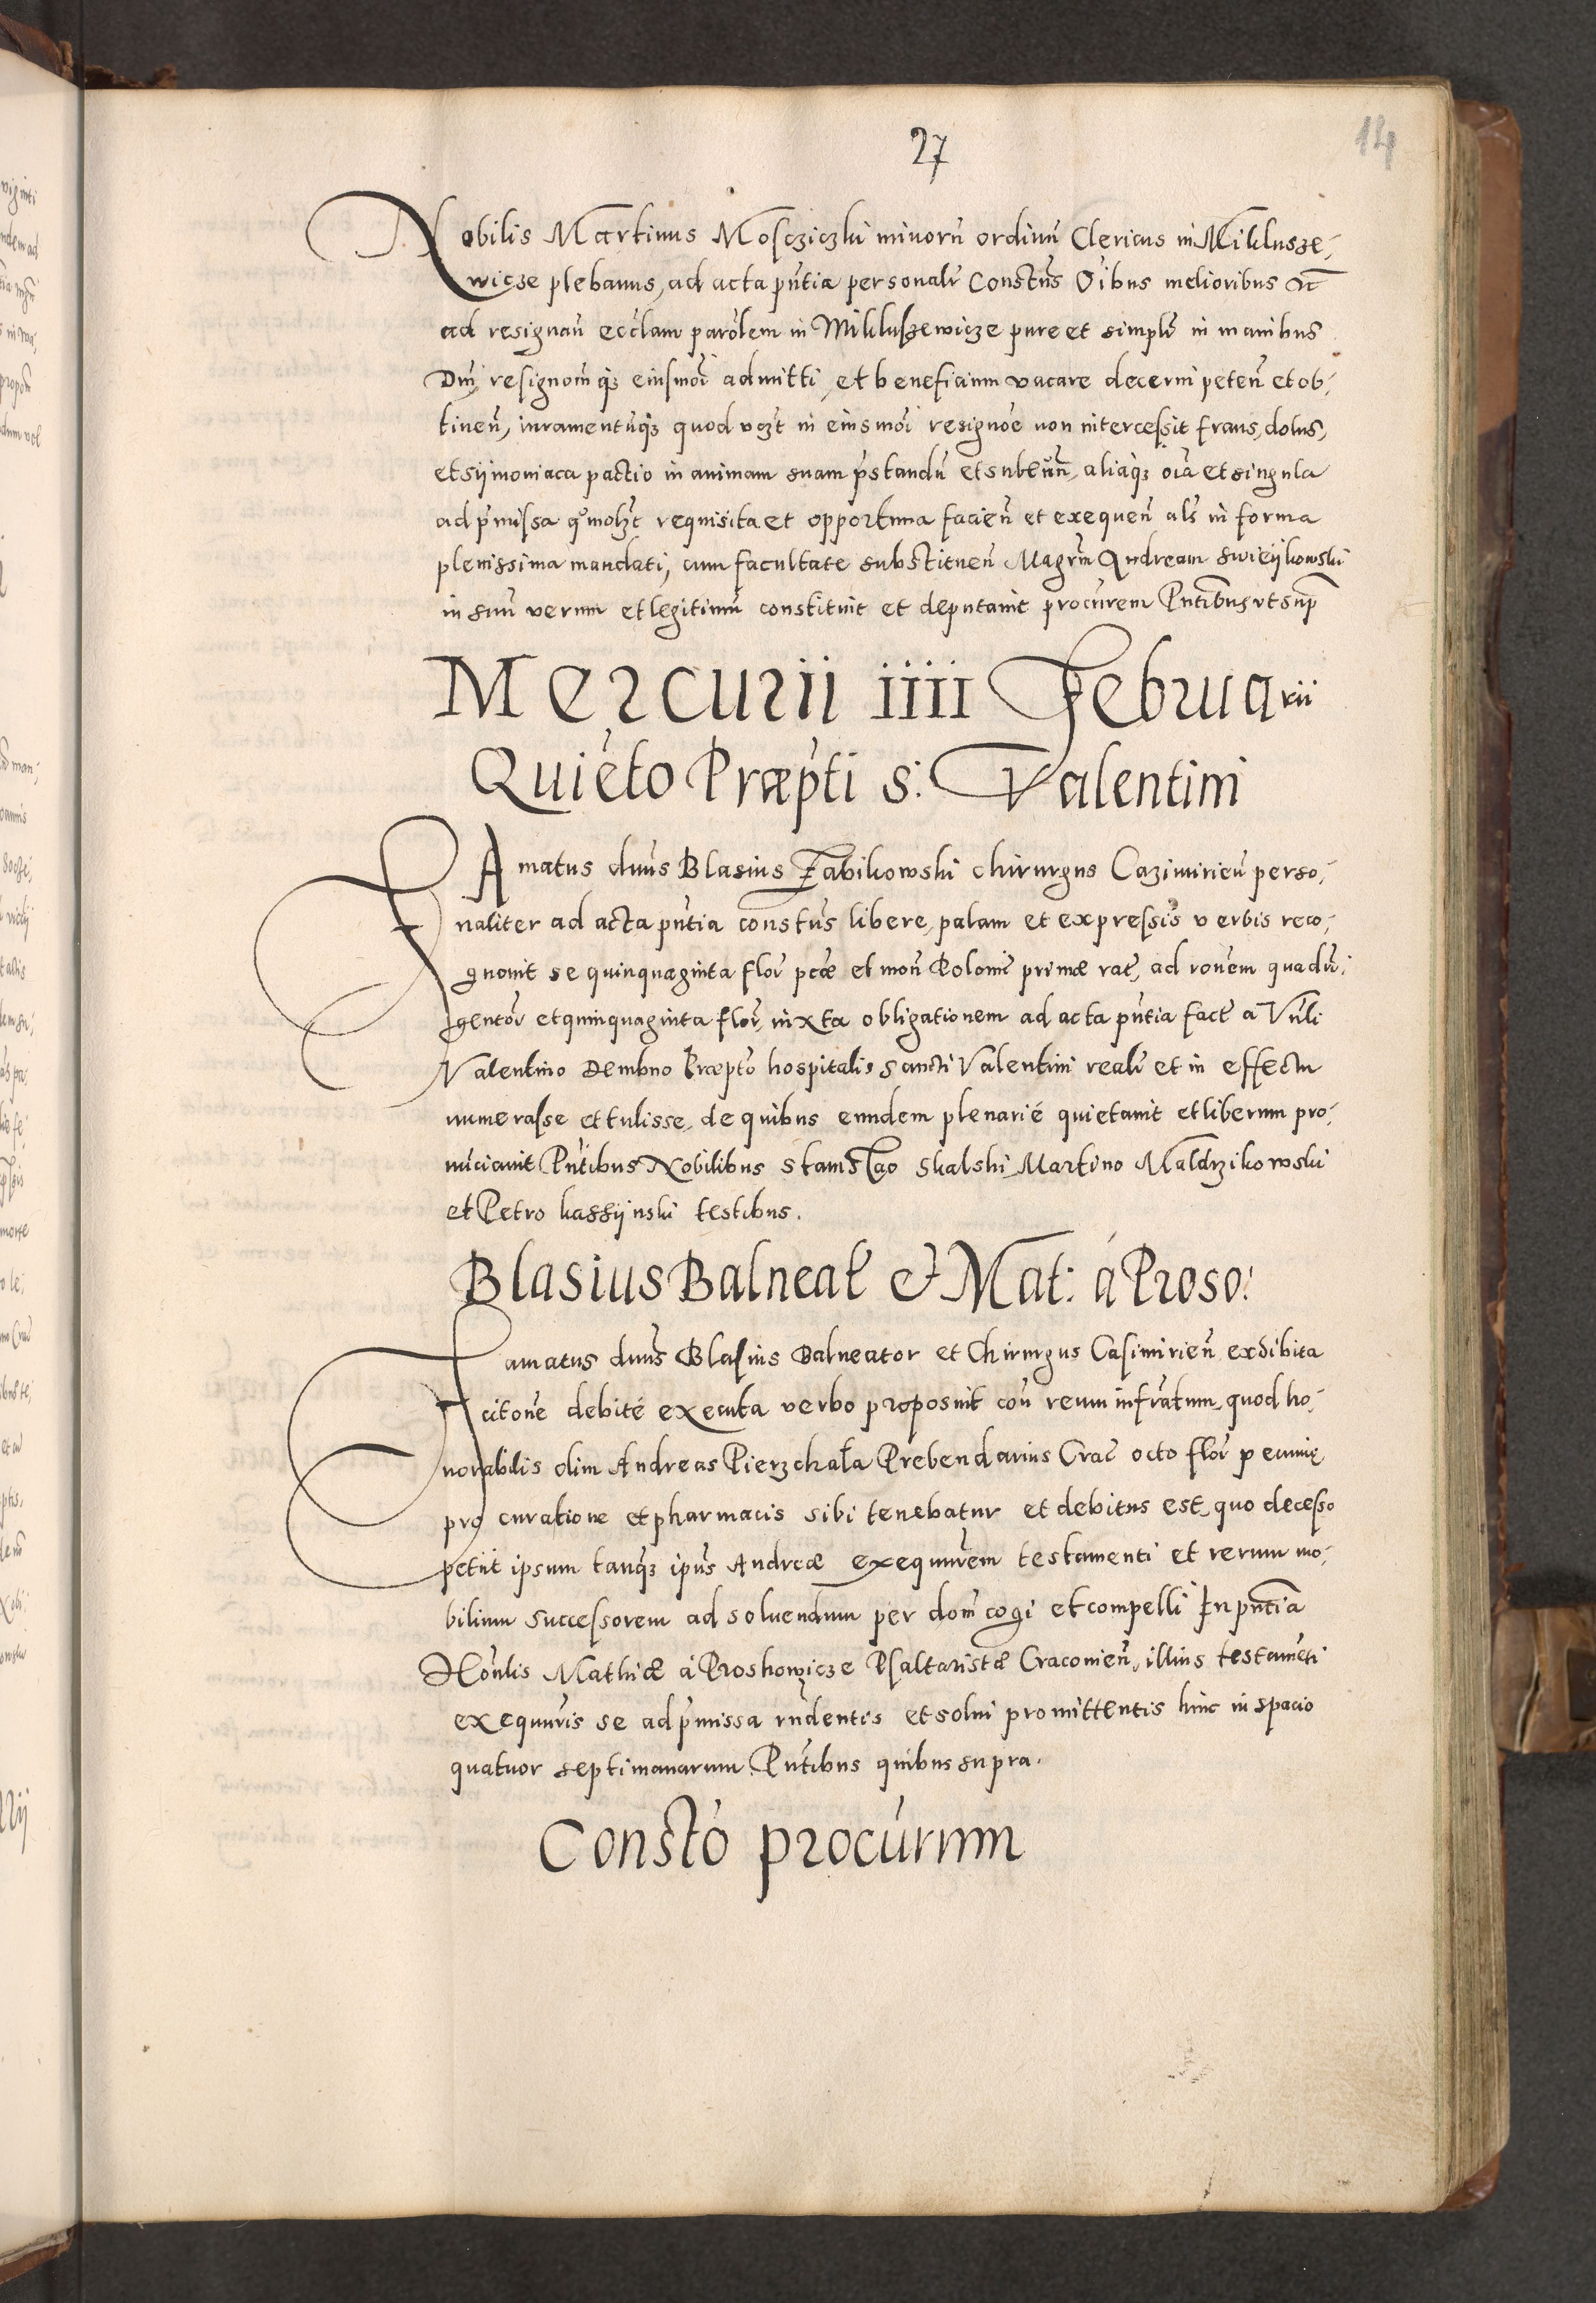 27
14
Nobilis Martinus Moscziczki minorũ ordinũ Clericus in Miklusze-
wicze plebanus, ad acta pñtia personalr̃ Constñs Oĩbus melioribus &c̃
ad resignañ eccl̃am parõlem in Mikluszewicze pure et simplr̃ in manibus
Dnj resignom̃qꝫ eiusmõi admitti, et beneficium vacare decerni peteñ et ob-
tineñ, iuramentũqꝫ quod vczt in eiusmõi resignõe non intercessit fraus, dolus,
et sijmoniaca pactio in animam suam p̃standũ et subeuñ, aliaqꝫ oĩa et singula
ad p̃missa requisita et opportuna facieñ et exequeñ als̃ in forma
plenissima mandati, cum facultate substitueñ Magrm̃ Andream Swieijkowski
in suũ verum et legitimũ constituit et deputauit procũrem Pñtibus vt sup̃
Mercurii iiii Februarii
Quiẽto Præp̃ti S: Valentini
Famatus dnũs Blasius Zabikowski chirurgus Cazimirieñ perso-
naliter ad acta pñtia constñs libere, palam et expressis verbis reco-
gnouit se quinquaginta flor̃ pcẽ et moñ Polonic̃ primæ rat̃, ad ronẽm quadri-
gentor̃ et quinquaginta flor̃, iuxta obligationem ad acta pñtia fact̃ a Vñli
Valentino Dembno Præpt̃o hospitalis Sancti Valentini realr̃ et in effectu
numerasse et tulisse, de quibus eundem plenariè quietauit et liberum pro-
nunciauit Pñtibus Nobilibus Stanislao Skalski Martino Maldrzikowski
et Petro kassijnski testibus.
Blasius Balneat̃ & Mat: á Proso:
Famatus dnũs Blasius Balneator et Chirurgus Casimirieñ exhibita
citonẽ debité executa verbo proposuit coñ reum infrãtum, quod ho-
norabilis olim Andreas Pierzchała Prebendarius Crac̃ octo flor̃ pecunię
pro curatione et pharmacis sibi tenebatur et debitus est, quo decesso
petiit ipsum tanqꝫ ipñs Andreæ exequutr̃em testamenti et rerum mo-
bilium successorem ad soluendum per dom̃ cogi et compelli In pñtia
Hoñlis Mathiæ à Proskowicze Psaltaristæ Cracouieñ, illius testamẽti
exequutr̃is se ad p̃missa rñdentis et solui promittentis hinc in spacio
quatuor septimanarum Pñtibus quibus supra.
Constõ procũrum